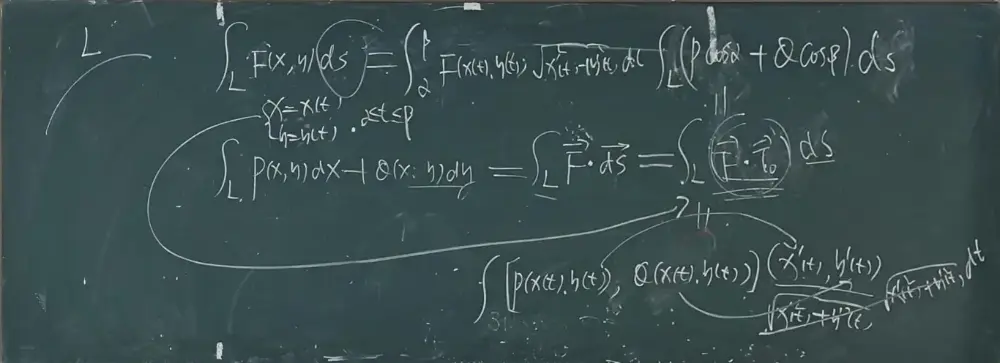 L
∫_L F(x,y) ds = ∫_α^β F(x(t), y(t)) √(x'²(t)+y'²(t)) dt ∫_L (P cosα + Q cosβ) ds
{x=x(t) y=y(t) . α≤t≤β
∫_L P(x,y)dx + Q(x,y)dy = ∫_L F⃗·ds⃗ = ∫_L F⃗·τ⃗₀ ds
∫ [P(x(t),y(t)), Q(x(t),y(t))] (x'(t), y'(t)) / √(x'²(t)+y'²(t)) √(x'²(t)+y'²(t)) dt